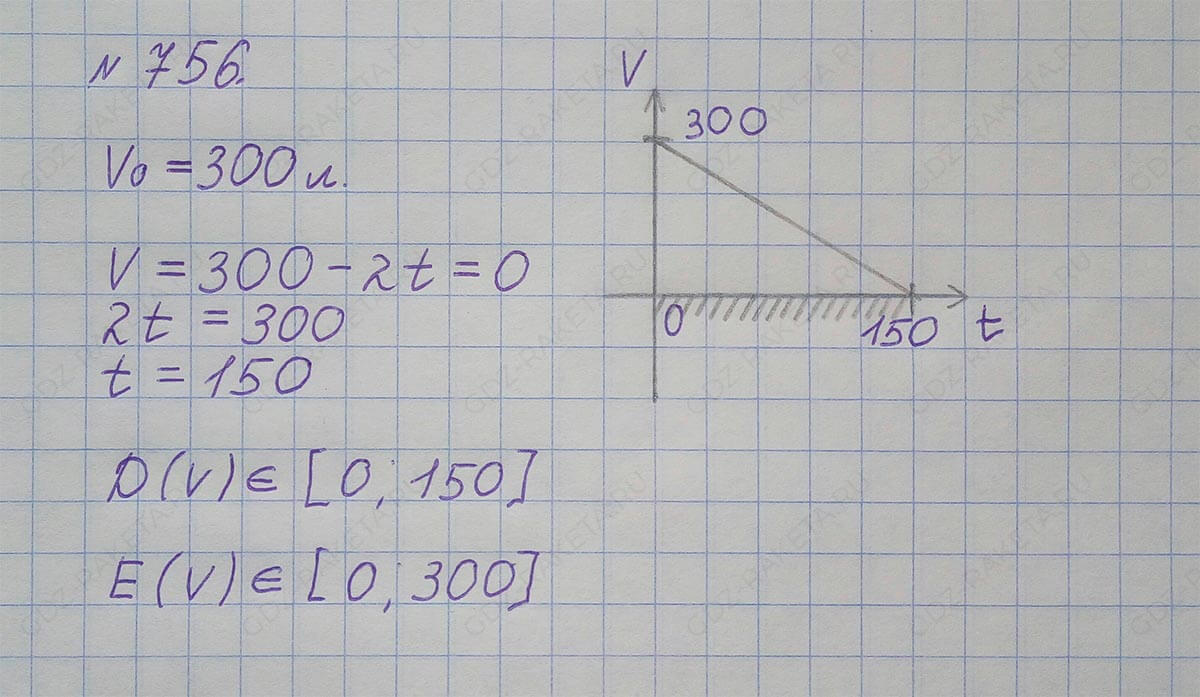 N 756.
V₀ = 300 л.
V = 300 - 2t = 0
2t = 300
t = 150
D(V) ∈ [0; 150]
E(V) ∈ [0; 300]
V
300
0
150
t
GDZ-RAKETA.RU